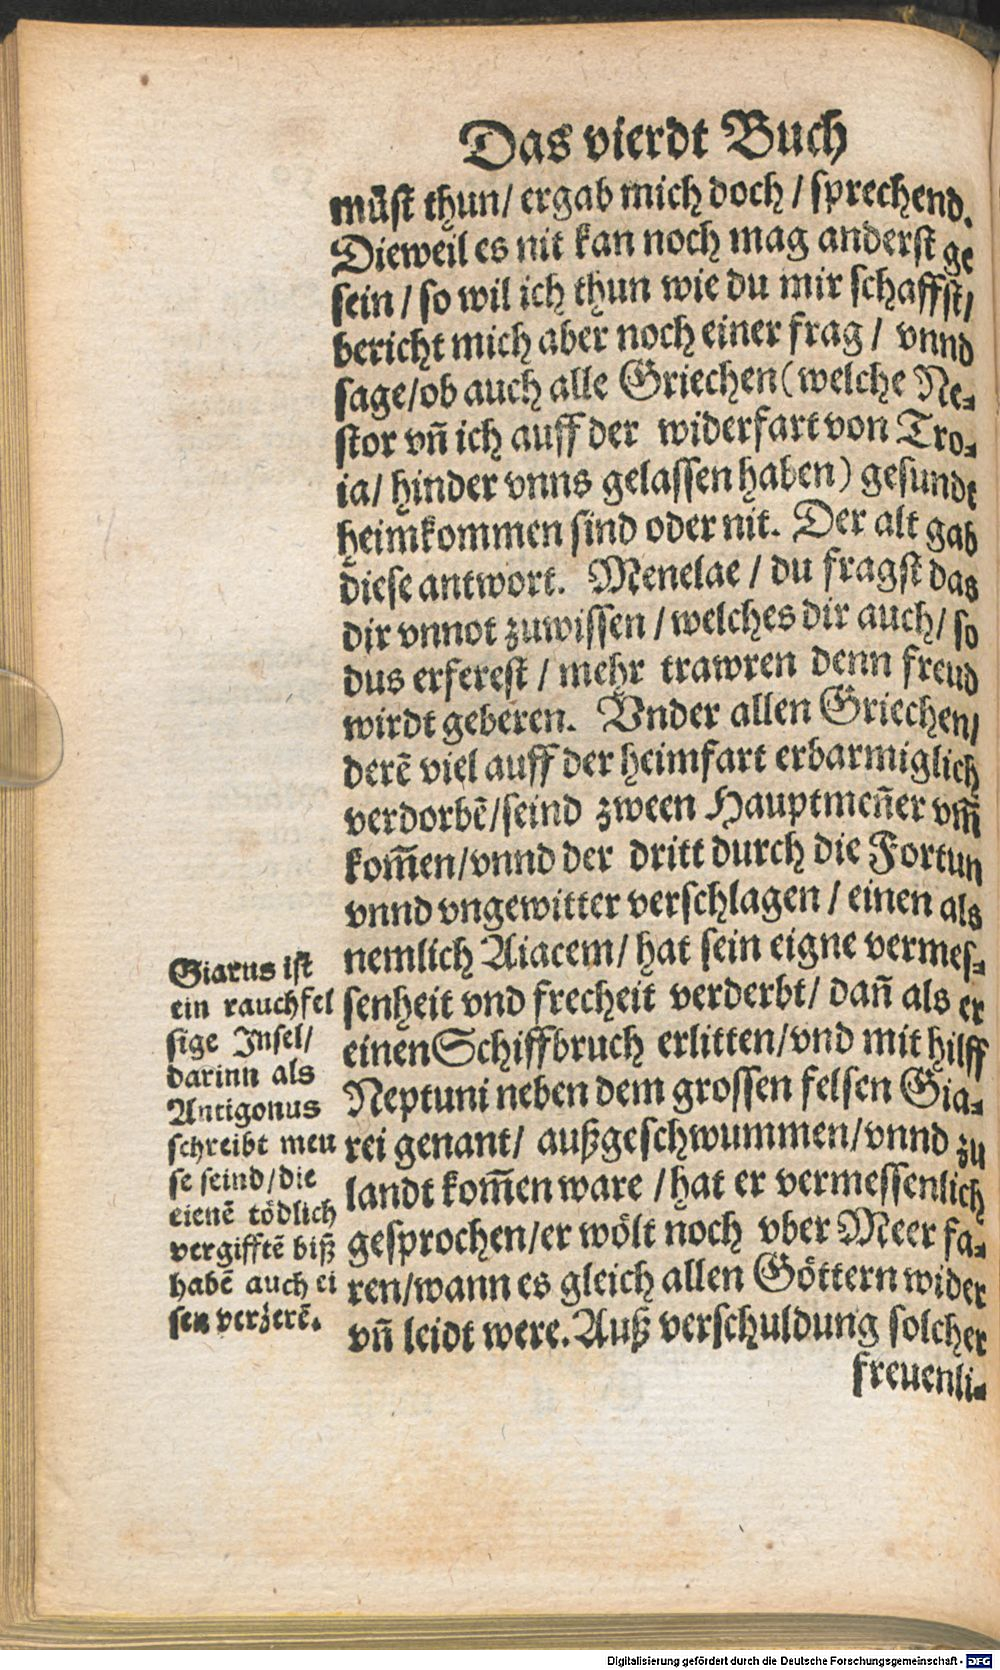 Das vierdt Buch
müst thun/ ergab mich doch/ sprechend.
Dieweil es nit kan noch mag anderst ge
sein/ so wil ich thun wie du mir schaffst/
bericht mich aber noch einer frag/ vnnd
sage/ob auch alle Griechen(welche Ne-
stor vñ ich auff der widerfart von Tro-
ia/ hinder vnns gelassen haben) gesundt
heimkommen sind oder nit. Der alt gab
diese antwort. Menelae/ du fragst das
dir vnnot zuwissen/welches dir auch/ so
dus erferest/ mehr trawren denn freud
wirdt geberen. Vnder allen Griechen/
derē viel auff der heimfart erbarmiglich
verdorbē/seind zween Hauptmeñer vm̃
kom̃en/vnnd der dritt durch die Fortun
vnnd vngewitter verschlagen/ einen als
nemlich Aiacem/ hat sein eigne vermes-
senheit vnd frecheit verderbt/ dañ als er
einen Schiffbruch erlitten/vnd mit hilff
Neptuni neben dem grossen felsen Gia-
rei genant/ außgeschwummen/vnnd zu
landt kom̃en ware/hat er vermessenlich
gesprochen/er wölt noch vber Meer fa-
ren/wann es gleich allen Göttern wider
vñ leidt were. Auß verschuldung solcher
freuenli-
Giarus ist
ein rauchfel
sige Insel/
darinn als
Antigonus
schreibt meu
se seind/die
eienē tödlich
vergifftē biß
habē auch ei
sen verzerē.
Digitalisierung gefördert durch die Deutsche Forschungsgemeinschaft - DFG